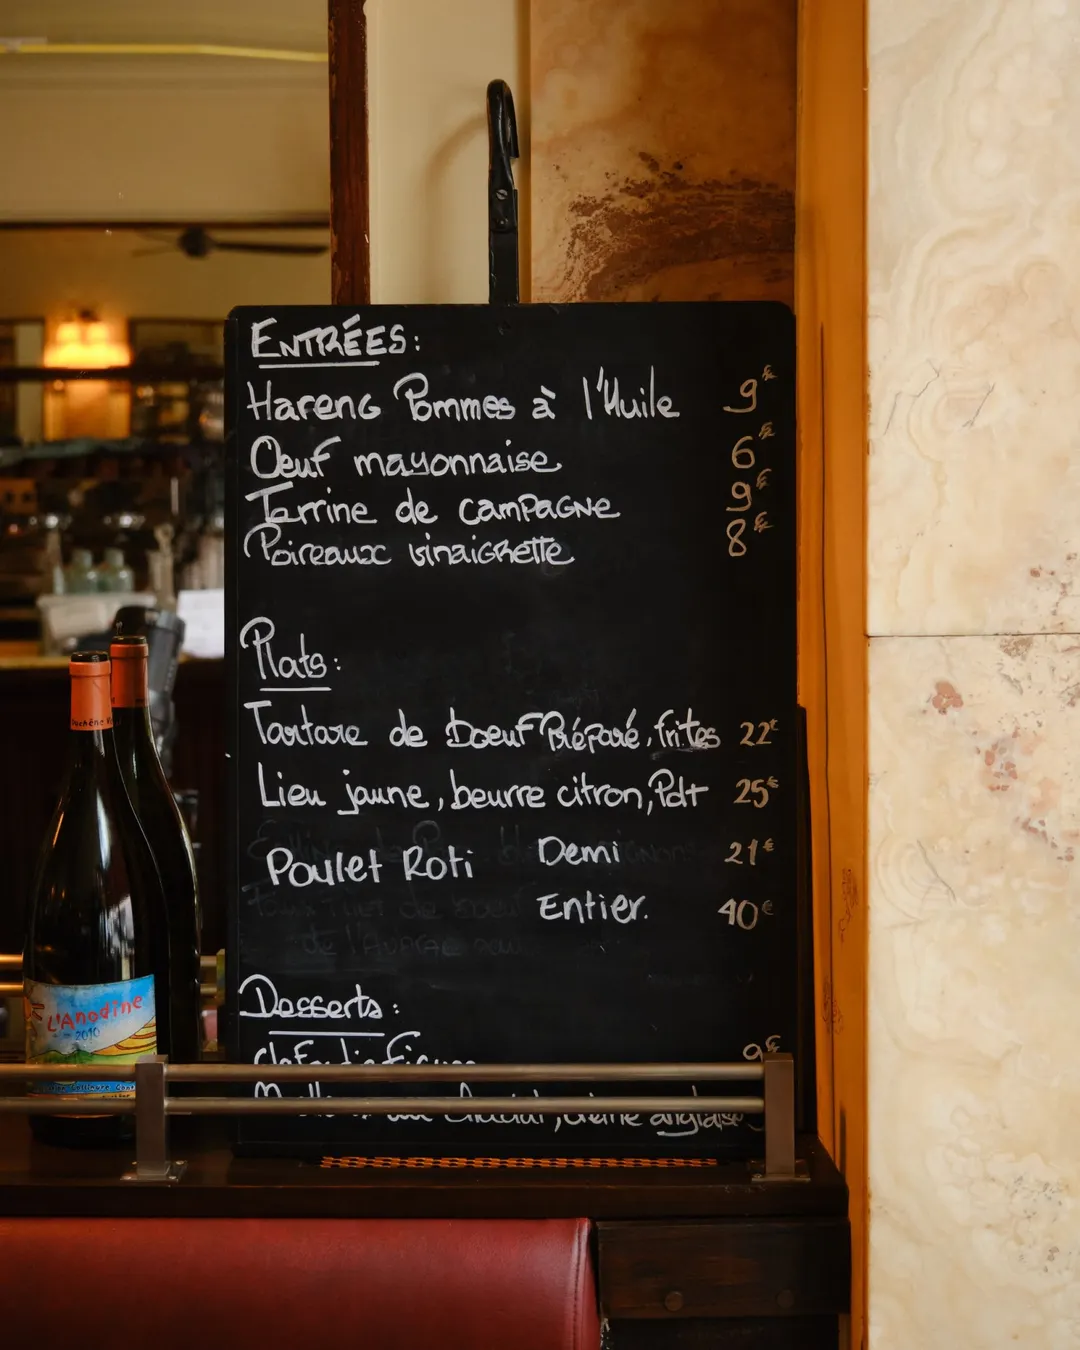 ENTRÉES:
Hareng Pommes à l'Huile 9€
Œuf mayonnaise 6€
Terrine de campagne 9€
Poireaux vinaigrette 8€
Plats:
Tartare de boeuf Préparé, frites 22€
Lieu jaune, beurre citron, Pdt 25€
Poulet Roti Demi 21€
Entier. 40€
Desserts:
9€
crème anglaise
L'Anodine
2010